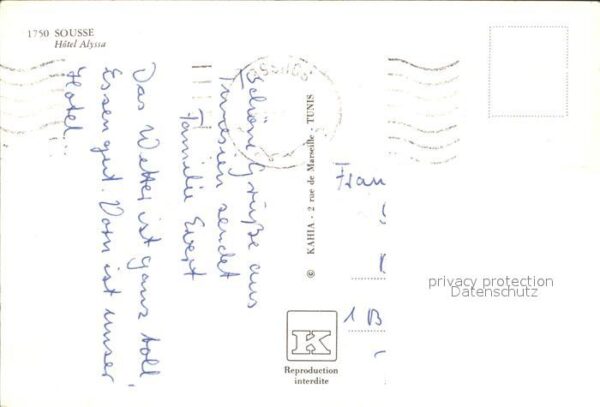 1750 SOUSSE
Hôtel Alyssa
Schöne Grüße aus
Tunesien sendet
Familie Ewert
Das Wetter ist ganz toll,
Essen gut. Vorn ist unser
Hotel.
SOUSSE
© KAHIA - 2 rue de Marseille - TUNIS
Fran
1 B
privacy protection
Datenschutz
K
Reproduction
interdite